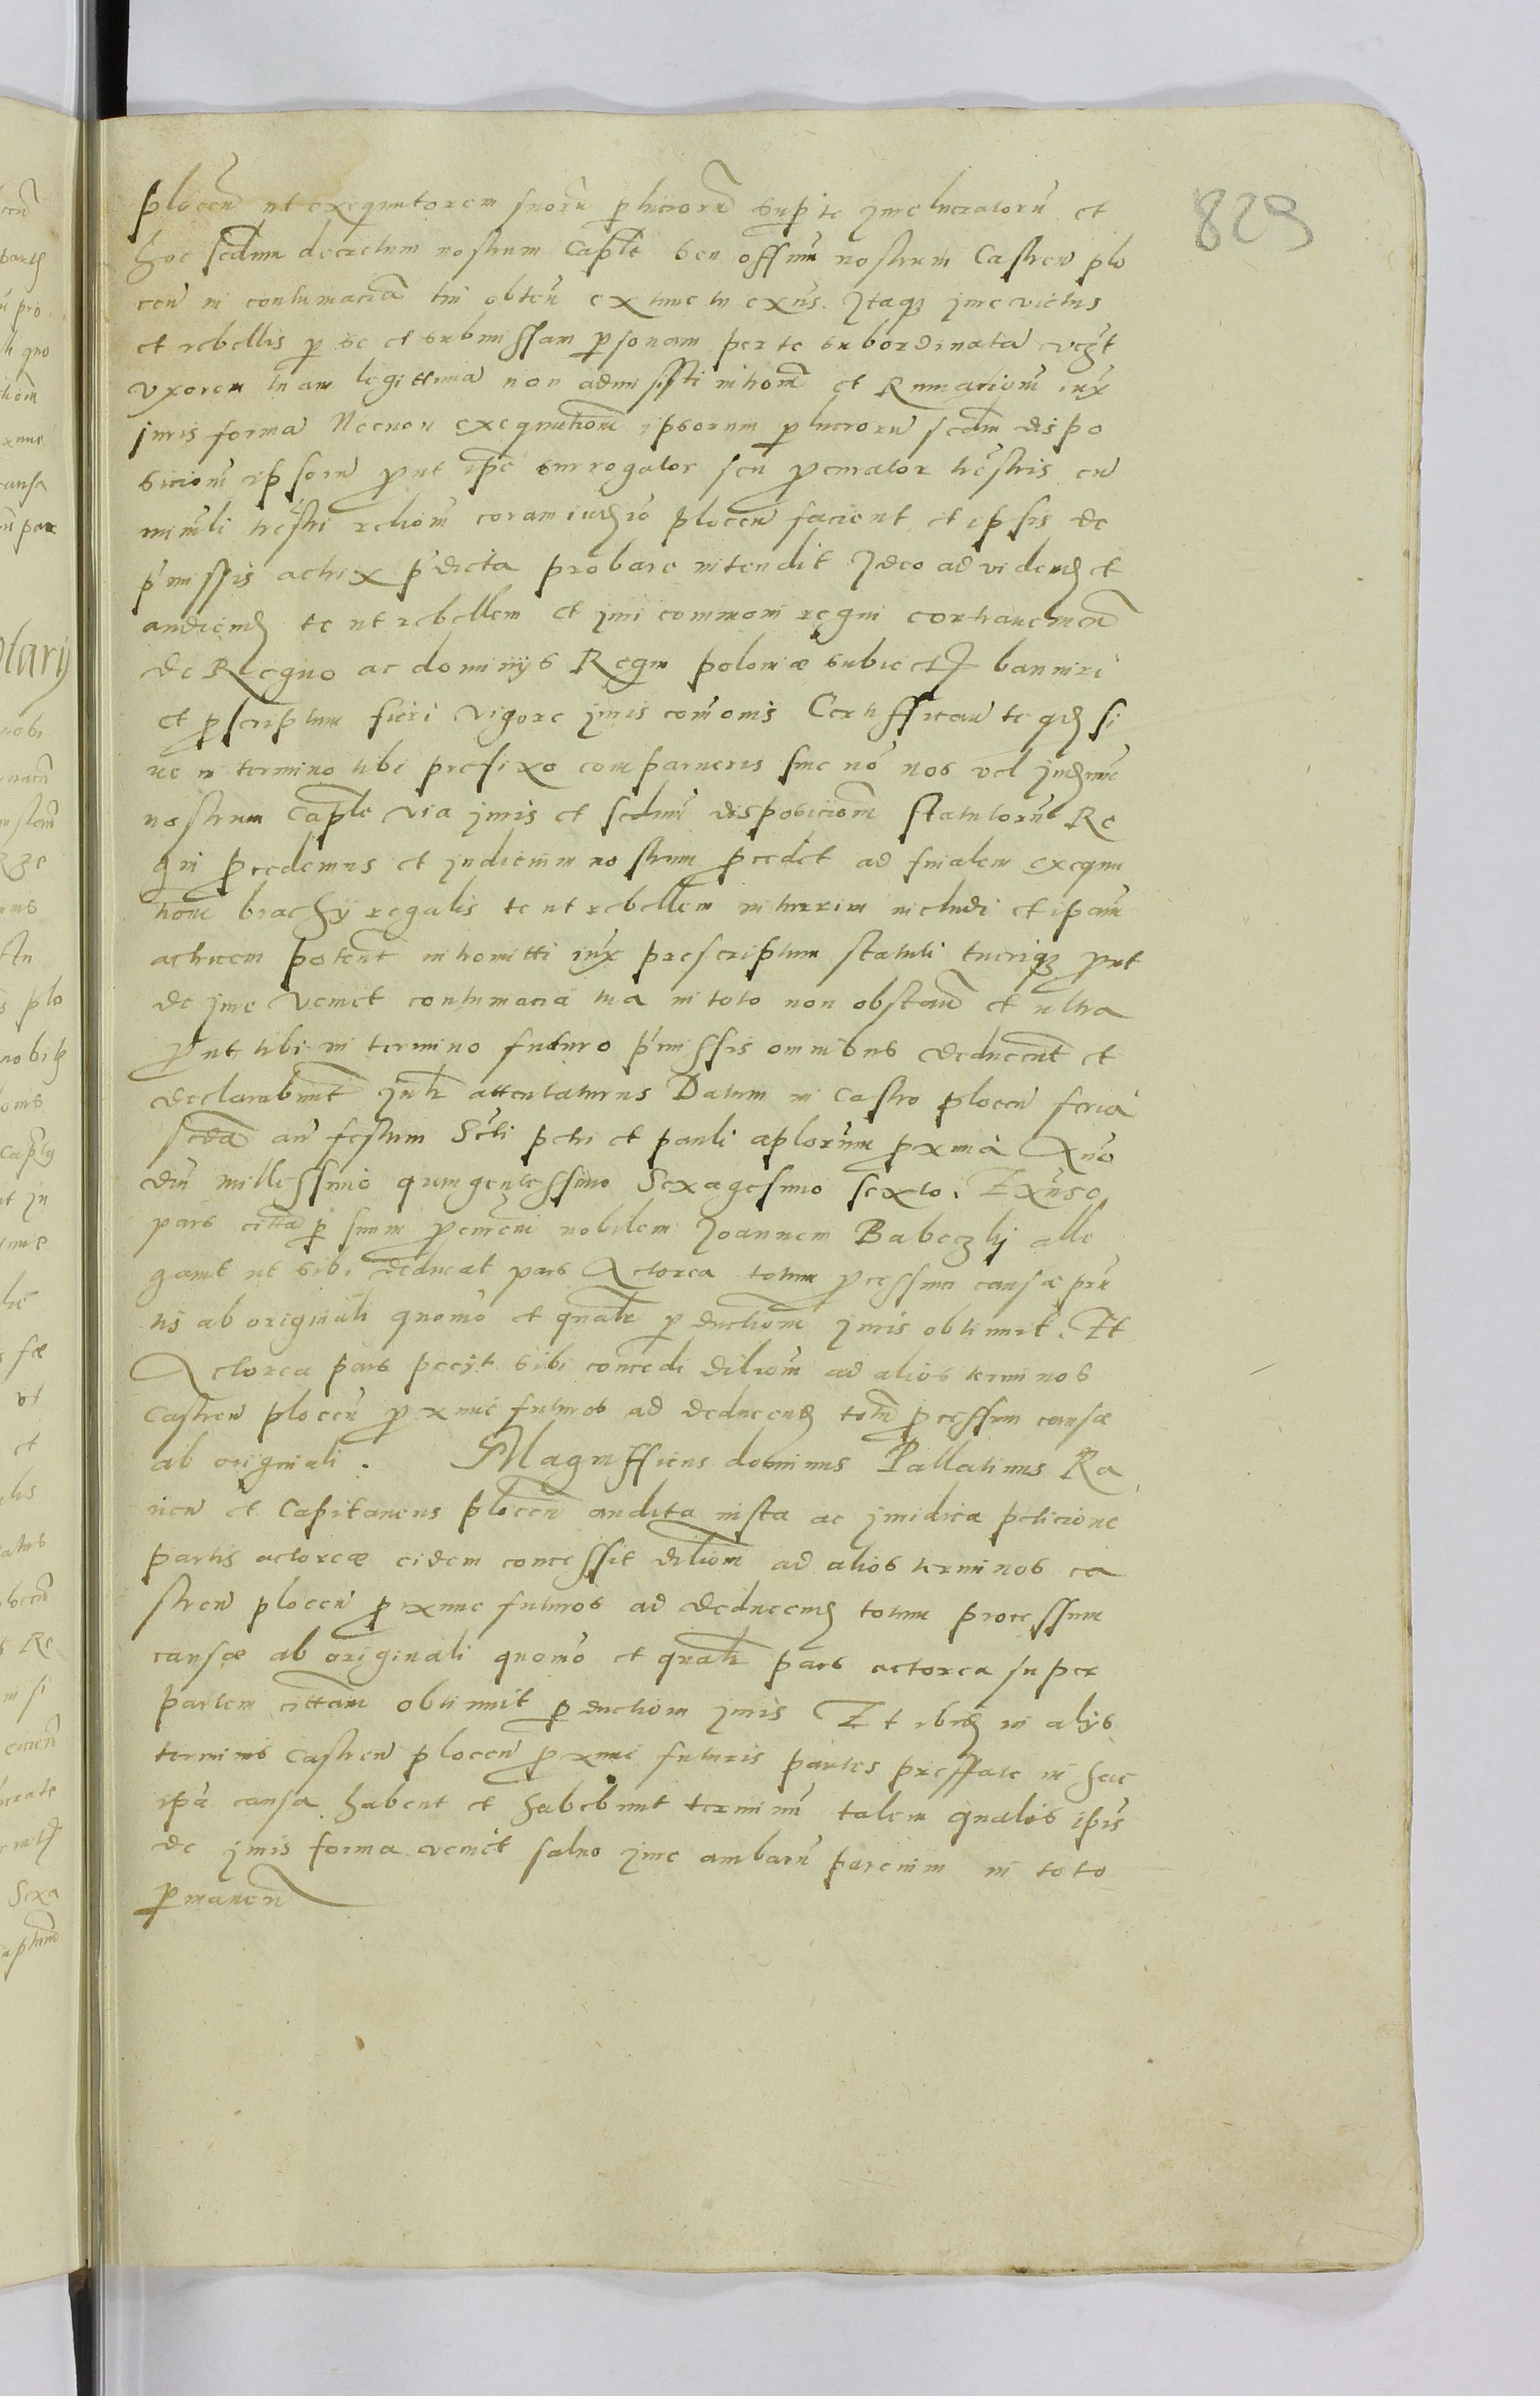 829
plocen ut exequutorem suoru perlucroru sup te jure lucratoru et
hoc scdum decretum nostrum Caple seu offium nostrum Castren plo
cen in contumacia tui obten extunc tu exns. Itaq jure victus
et rebellis p se et submissam psonam per te subordinata
uxorem tuam legittima non admisisti introm et Rumacioni iux
juris forma Necnon exequutiom ipsorum plucroru scdm dispo
siciom ipsoru put ipe surrogator seu pcurator trestris
nrestri reliom coram iudicio plocen facient et ipsis de
pmissis actrix pdicta probare intendit Ideo ad videnď et
audienď te ut rebellem et juri commoni regni contravenien
de Regno ac dominiis Regni poloniæ subiectis banniri
et pscriptum fieri vigore juris comonis Certifficau te qď si
ne in termino tibi prefixo comparueris sine no nos vel
nostrum Caple via juris et scdum disposiciom statutoru Re
gni pcedemus et judicium nostrum pcedet ad finalem exequu
tiom brachÿ regalis te ut rebellem interim includi et ipam
actricem potent intromitti iux prescriptum statuti tueriq put
de jure veniet contumacia tua in toto non obstan et ultra
put tibi in termino futuro pmissis omnibus deducent et
declarabunt Jntr attentaturus Datum in Castro plocen feria
scda an festum Scti petri et pauli aplorum pxima Anno
dni millessimo quingentessimo Sexagesimo sexto. Exnso
pars citta p suum pcurem nobilem Joannem Babeczky alle
gauit ut sibi deducat pars Actorea totum pcessum causæ prn
tis ab originali quomo et qualr pductiom juris obtinuit. Et
Actorea pars peÿt sibi concedi diliom ad alios terminos
Castren plocen pxime futuros ad deducenď totu pcessum causæ
ab originali. Magnifficus dominus Pallatinus Ra
uen et Capitaneus plocen audita iusta ac juridica peticione
partis actoreæ eidem concessit diliom ad alios terminos ca
stren plocen pxime futuros ad deducenď totum processum
causæ ab originali quomo et qualr pars actorea super
partem cittam obtinuit pductiom juris Et ibiď in alÿs
terminis Castren plocen pxime futuris partes preffate in hac
ipa causa habent et habebunt terminu talem qualis ipis
de juris forma veniet saluo jure ambaru parcium in toto
pmanen